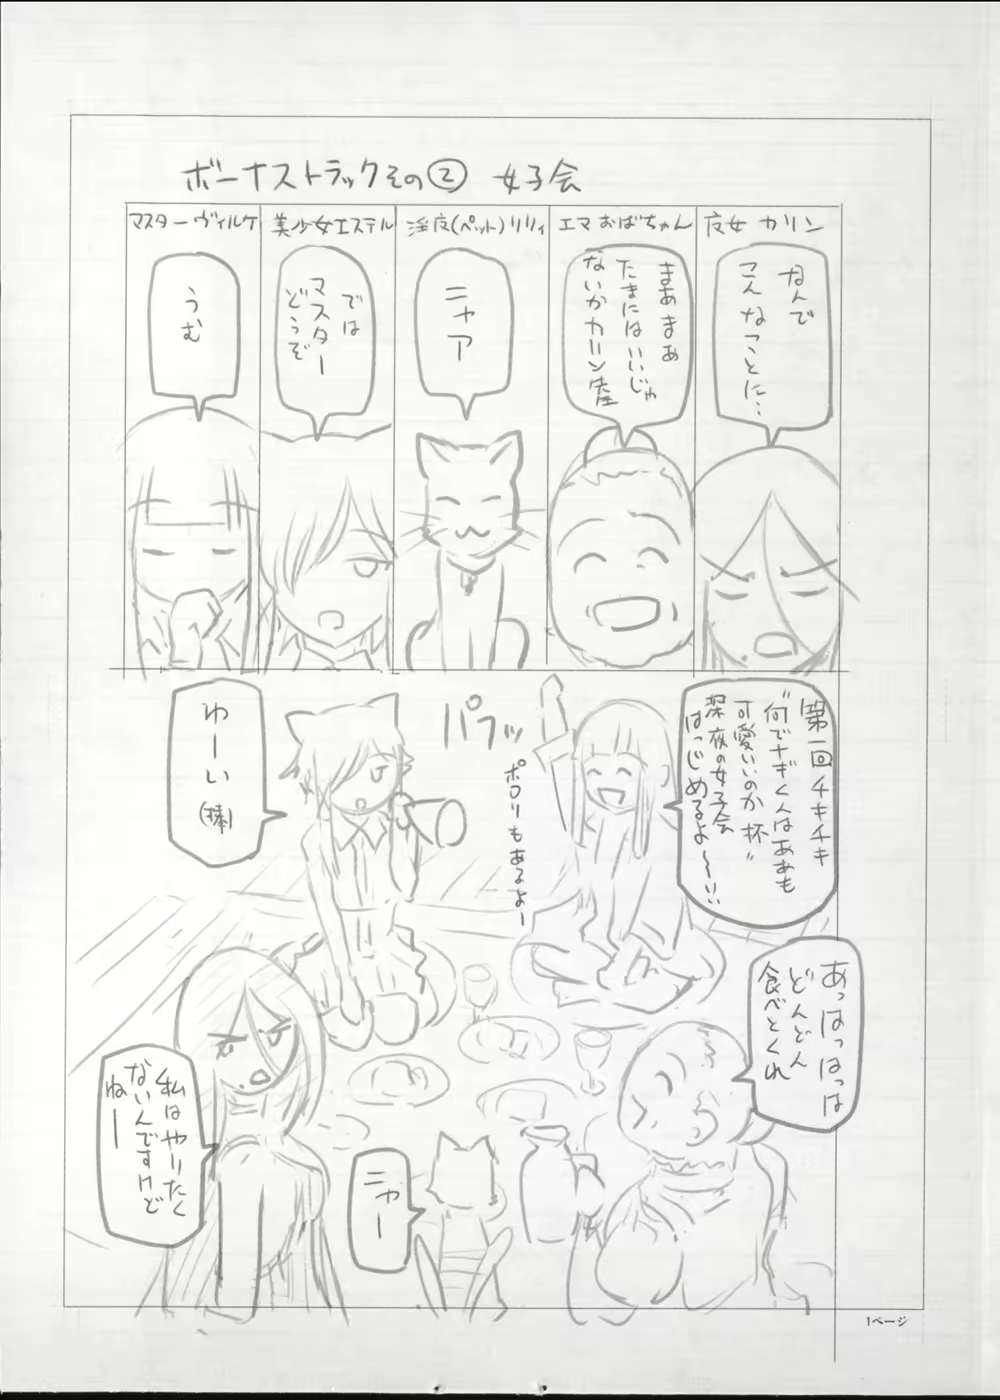 ボーナストラックその② 女子会
皮女 カリン
なんで
こんなことに…
エマ おばちゃん
まあまあ
たまにはいいじゃ
ないかカリン産
淫皮(ペット)リリィ
ニャア
美少女エステル
では
マスター
どうぞ
マスターヴィルケ
うむ
第一回チキチキ
"何でナギくんはああも
可愛いいのか杯"
深夜の女子会
はっじめるよ〜!!
パフッ
ポロリもあるよー
わーい
(棒)
あっはっはっは
どんどん
食べとくれ
私はやりたく
ないんですけど
ねー
ニャー
1ページ